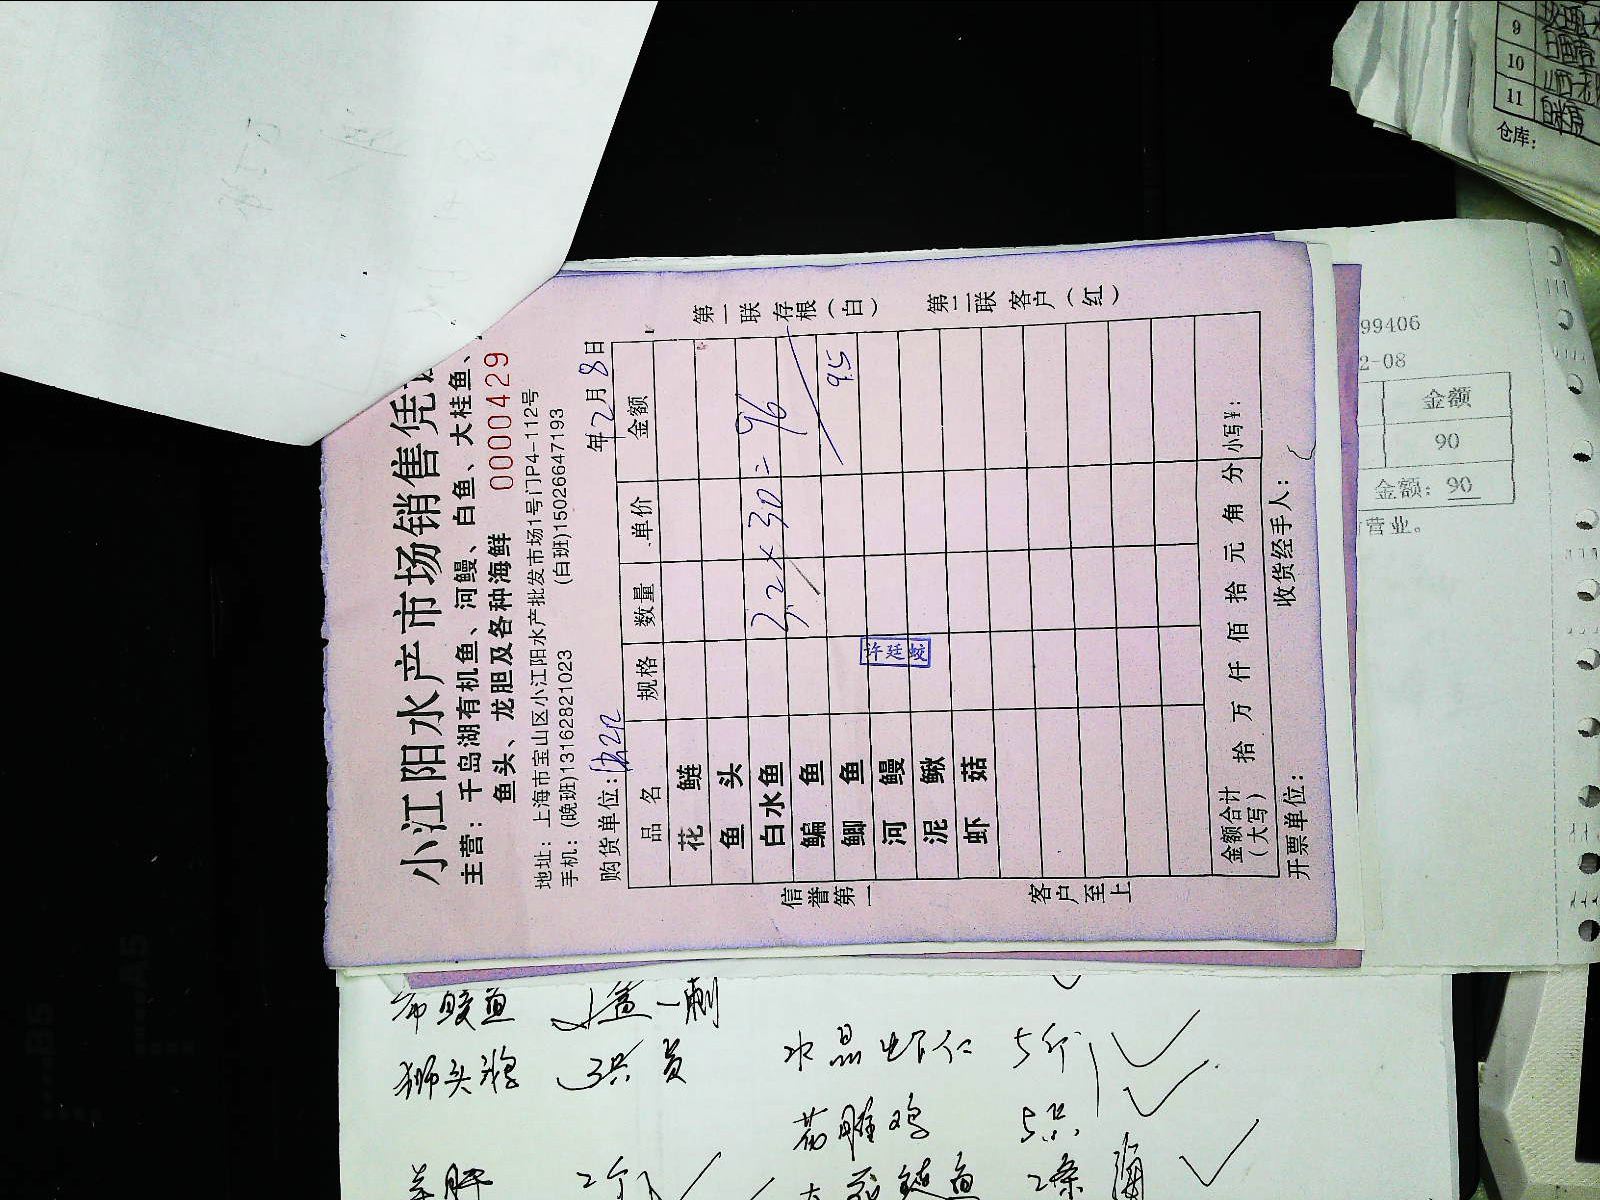 小江阳水产市场销售凭
主营：千岛湖有机鱼、河鳗、白鱼、大桂鱼、
鱼头、龙胆及各种海鲜 0000429
地址：上海市宝山区小江阳水产批发市场1号门P4-112号
手机：(晚班)13162821023 (白班)15026647193
购货单位： 年2月8日
品名 规格 数量 单价 金额
花鲢
鱼头
白水鱼 3.2×30=96
鳊鱼
鲫鱼 95
河鳗
泥鳅
虾菇
许廷蛟
金额合计（大写） 拾 万 仟 佰 拾 元 角 分 小写¥：
开票单位： 收货经手人：
信誉第一 客户至上
第一联存根（白） 第二联客户（红）
99406
2-08
金额
90
金额：90
营业。
9
10
11
仓库：
水晶虾仁 5斤
5只
2个
2条